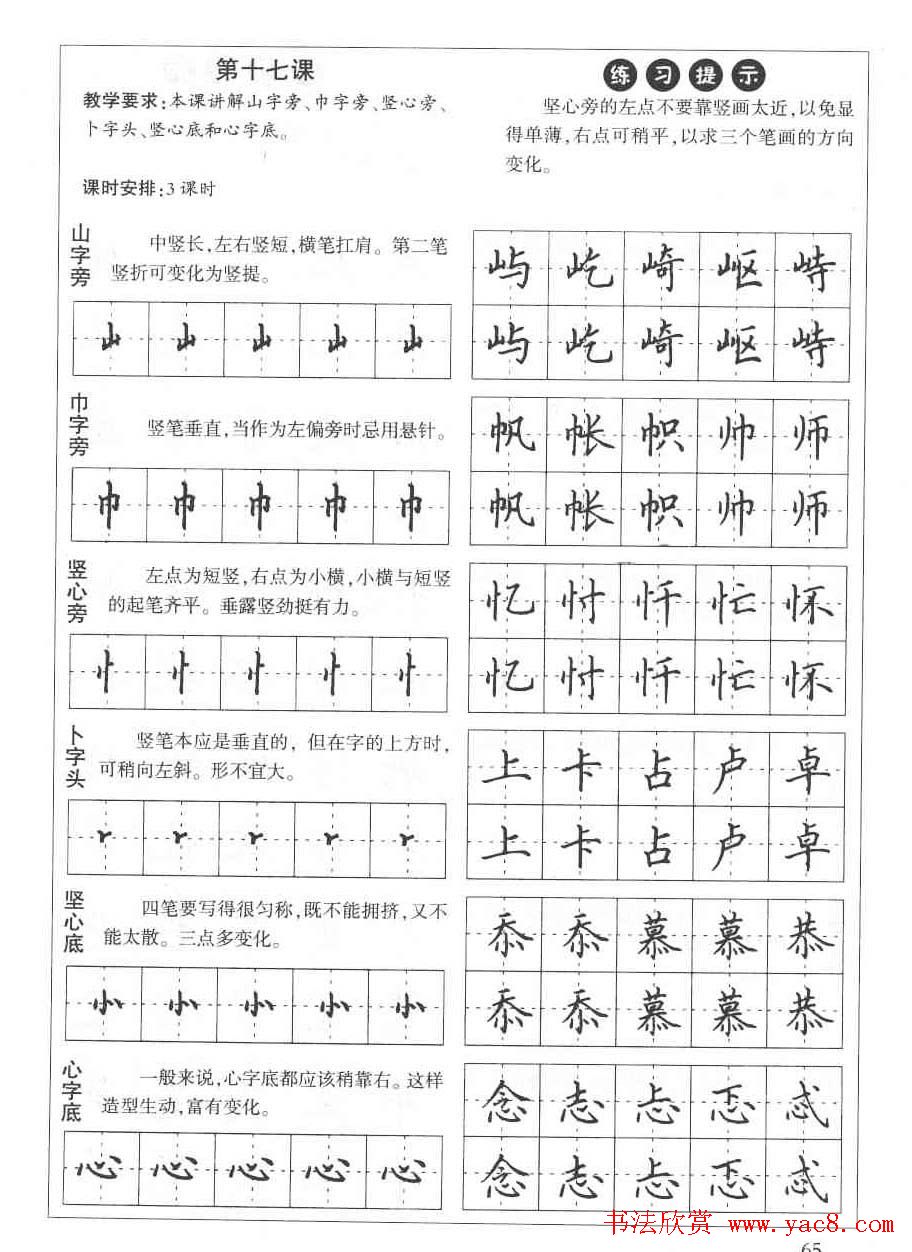 第十七课
教学要求:本课讲解山字旁、巾字旁、竖心旁、
卜字头、竖心底和心字底。
课时安排:3课时
练习提示
竖心旁的左点不要靠竖画太近,以免显
得单薄,右点可稍平,以求三个笔画的方向
变化。
山字旁
中竖长,左右竖短,横笔扛肩。第二笔
竖折可变化为竖提。
山 山 山 山 山
屿 屹 崎 岖 峙
屿 屹 崎 岖 峙
巾字旁
竖笔垂直,当作为左偏旁时忌用悬针。
巾 巾 巾 巾 巾
帆 帐 帜 帅 师
帆 帐 帜 帅 师
竖心旁
左点为短竖,右点为小横,小横与短竖
的起笔齐平。垂露竖劲挺有力。
忄 忄 忄 忄 忄
忆 忖 忏 忙 怀
忆 忖 忏 忙 怀
卜字头
竖笔本应是垂直的,但在字的上方时,
可稍向左斜。形不宜大。
上 卡 占 卢 卓
上 卡 占 卢 卓
竖心底
四笔要写得很匀称,既不能拥挤,又不
能太散。三点多变化。
⺗ ⺗ ⺗ ⺗ ⺗
忝 忝 慕 慕 恭
忝 忝 慕 慕 恭
心字底
一般来说,心字底都应该稍靠右。这样
造型生动,富有变化。
心 心 心 心 心
念 志 忐 忑 忒
念 志 忐 忑 忒
书法欣赏 www.yac8.com
65